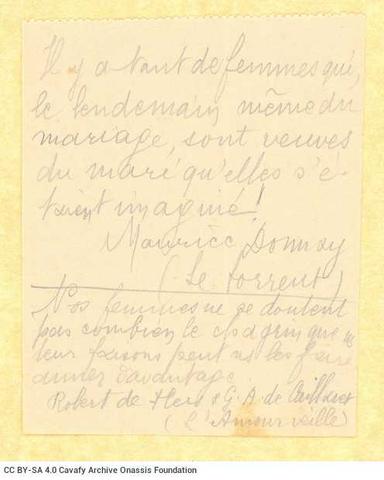 Il y a tant de femmes qui,
le lendemain même du
mariage, sont veuves
du mari qu'elles s'é-
taient imaginé!
Maurice Donnay
(Le Torrent)
Nos femmes ne se doutent
pas combien le chagrin que nous
leur faisons peut nous les faire
aimer davantage
Robert de Flers & G. A. de Caillavet
(L'Amour veille)
CC BY-SA 4.0 Cavafy Archive Onassis Foundation